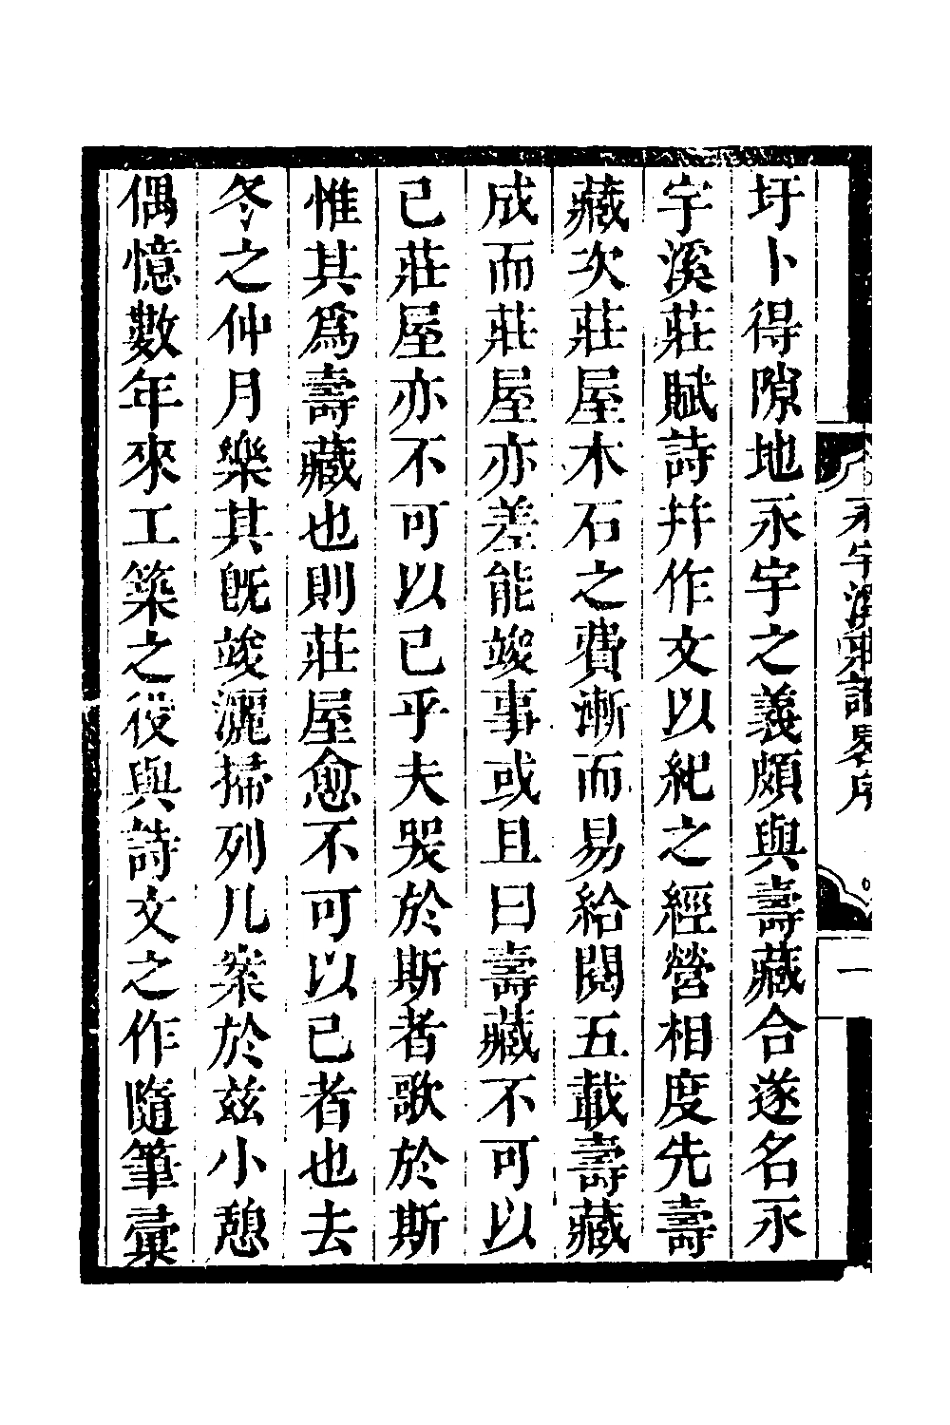 圩卜得隙地永宇之義頗與壽藏合遂名永
宇溪莊賦詩幷作文以紀之經營相度先壽
藏次莊屋木石之費漸而易給閱五載壽藏
成而莊屋亦差能竣事或且曰壽藏不可以
已莊屋亦不可以已乎夫哭於斯者歌於斯
惟其爲壽藏也則莊屋愈不可以已者也去
冬之仲月樂其旣竣灑掃列几案於兹小憩
偶憶數年來工築之役與詩文之作隨筆彙
永宇溪莊識畧序
一